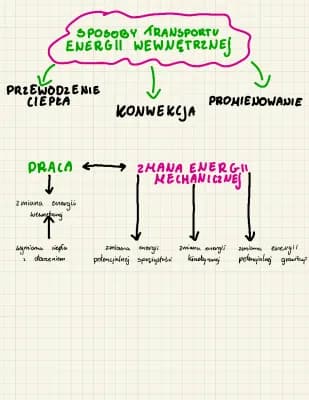 SPOSOBY TRANSPORTU
ENERGII WEWNĘTRZNEJ
PRZEWODZENIE
CIEPŁA
KONWEKCJA
PROMIENOWANIE
PRACA
ZMANA ENERGII
MECHANICZNEJ
zmiana energii
wewnętrznej
wymiana ciepła
z otoczeniem
zmiana energii
potencjalnej sprężystości
zmiana energii
kinetycznej
zmiana energii
potencjalnej